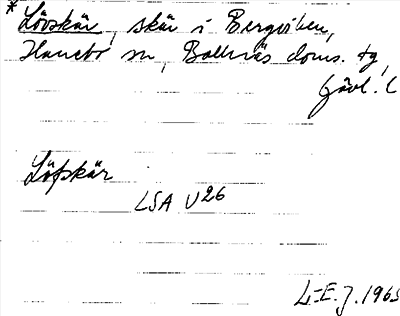 * Lövskär, skär i Bergviken,
Hanebo sn, Bollnäs doms. tg,
Gävl. l
Löfskär
LSA U26
L-E. J. 1965